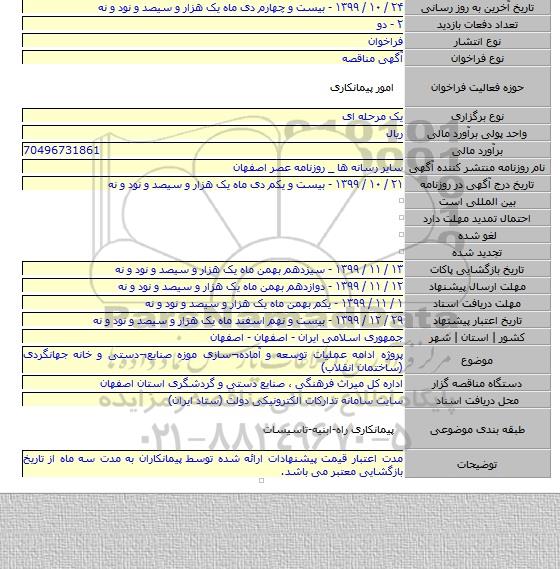 تاریخ آخرین به روز رسانی ۲۴ / ۱۰ / ۱۳۹۹ - بیست و چهارم دی ماه یک هزار و سیصد و نود و نه
تعداد دفعات بازدید ۲ - دو
نوع انتشار فراخوان
نوع فراخوان آگهی مناقصه
حوزه فعالیت فراخوان امور پیمانکاری
نوع برگزاری یک مرحله ای
واحد پولی برآورد مالی ریال
برآورد مالی 70496731861
نام روزنامه منتشر کننده آگهی سایر رسانه ها _ روزنامه عصر اصفهان
تاریخ درج آگهی در روزنامه ۲۱ / ۱۰ / ۱۳۹۹ - بیست و یکم دی ماه یک هزار و سیصد و نود و نه
بین المللی است
احتمال تمدید مهلت دارد
لغو شده
تجدید شده
تاریخ بازگشایی پاکات ۱۳ / ۱۱ / ۱۳۹۹ - سیزدهم بهمن ماه یک هزار و سیصد و نود و نه
مهلت ارسال پیشنهاد ۱۲ / ۱۱ / ۱۳۹۹ - دوازدهم بهمن ماه یک هزار و سیصد و نود و نه
مهلت دریافت اسناد ۱ / ۱۱ / ۱۳۹۹ - یکم بهمن ماه یک هزار و سیصد و نود و نه
تاریخ اعتبار پیشنهاد ۲۹ / ۱۲ / ۱۳۹۹ - بیست و نهم اسفند ماه یک هزار و سیصد و نود و نه
کشور | استان | شهر جمهوری اسلامی ایران - اصفهان - اصفهان
موضوع پروژه ادامه عملیات توسعه و آماده-سازی موزه صنایع-دستی و خانه جهانگردی
(ساختمان انقلاب)
دستگاه مناقصه گزار اداره کل میراث فرهنگی ، صنایع دستی و گردشگری استان اصفهان
محل دریافت اسناد سایت سامانه تدارکات الکترونیکی دولت (ستاد ایران)
طبقه بندی موضوعی پیمانکاری راه-ابنیه-تاسیسات
توضیحات مدت اعتبار قیمت پیشنهادات ارائه شده توسط پیمانکاران به مدت سه ماه از تاریخ
بازگشایی معتبر می باشد.
۰۲۱-۸۸۳۴۹۶۷۰-۵